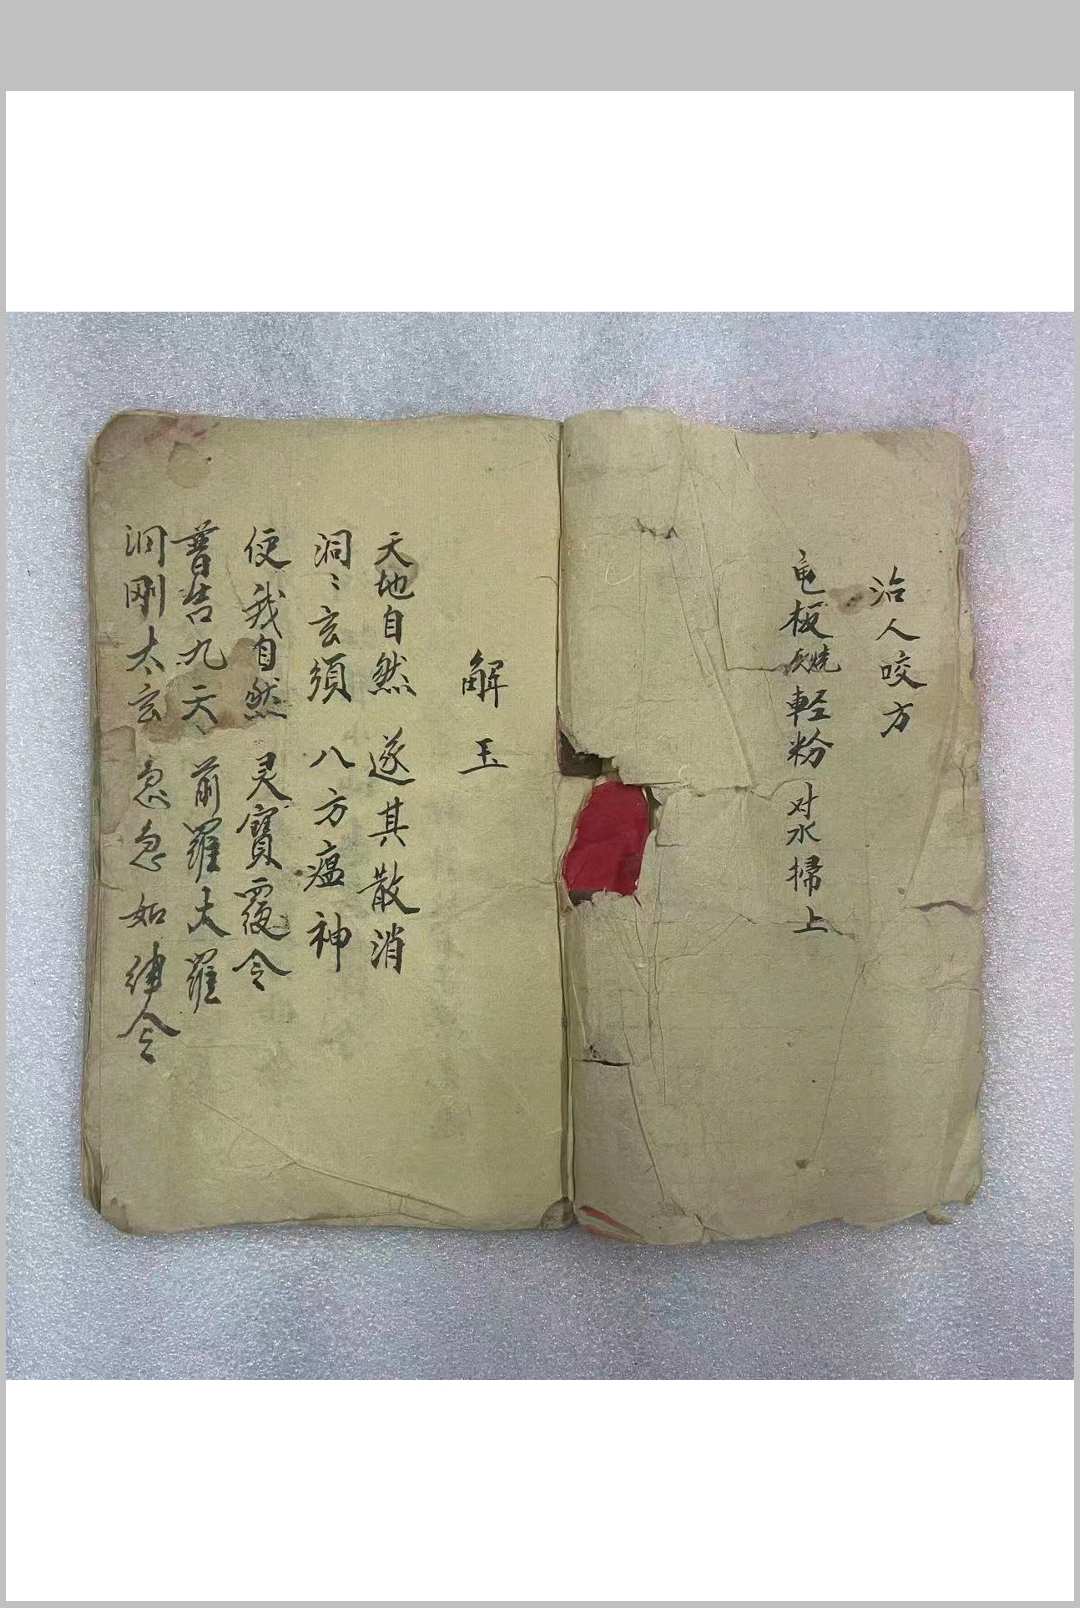 治人咬方
龟板燒灰輕粉对水掃上
解玉
天地自然 遂其散消
洞〻玄須 八方瘟神
使我自然 灵寶覆令
普告九天 前羅大羅
洞刚太玄 急急如律令